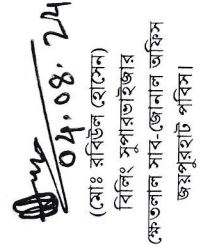 04.08.24
(মোঃ রবিউল হোসেন)
বিলিং সুপারভাইজার
ক্ষেতলাল সাব-জোনাল অফিস
জয়পুরহাট পবিস।